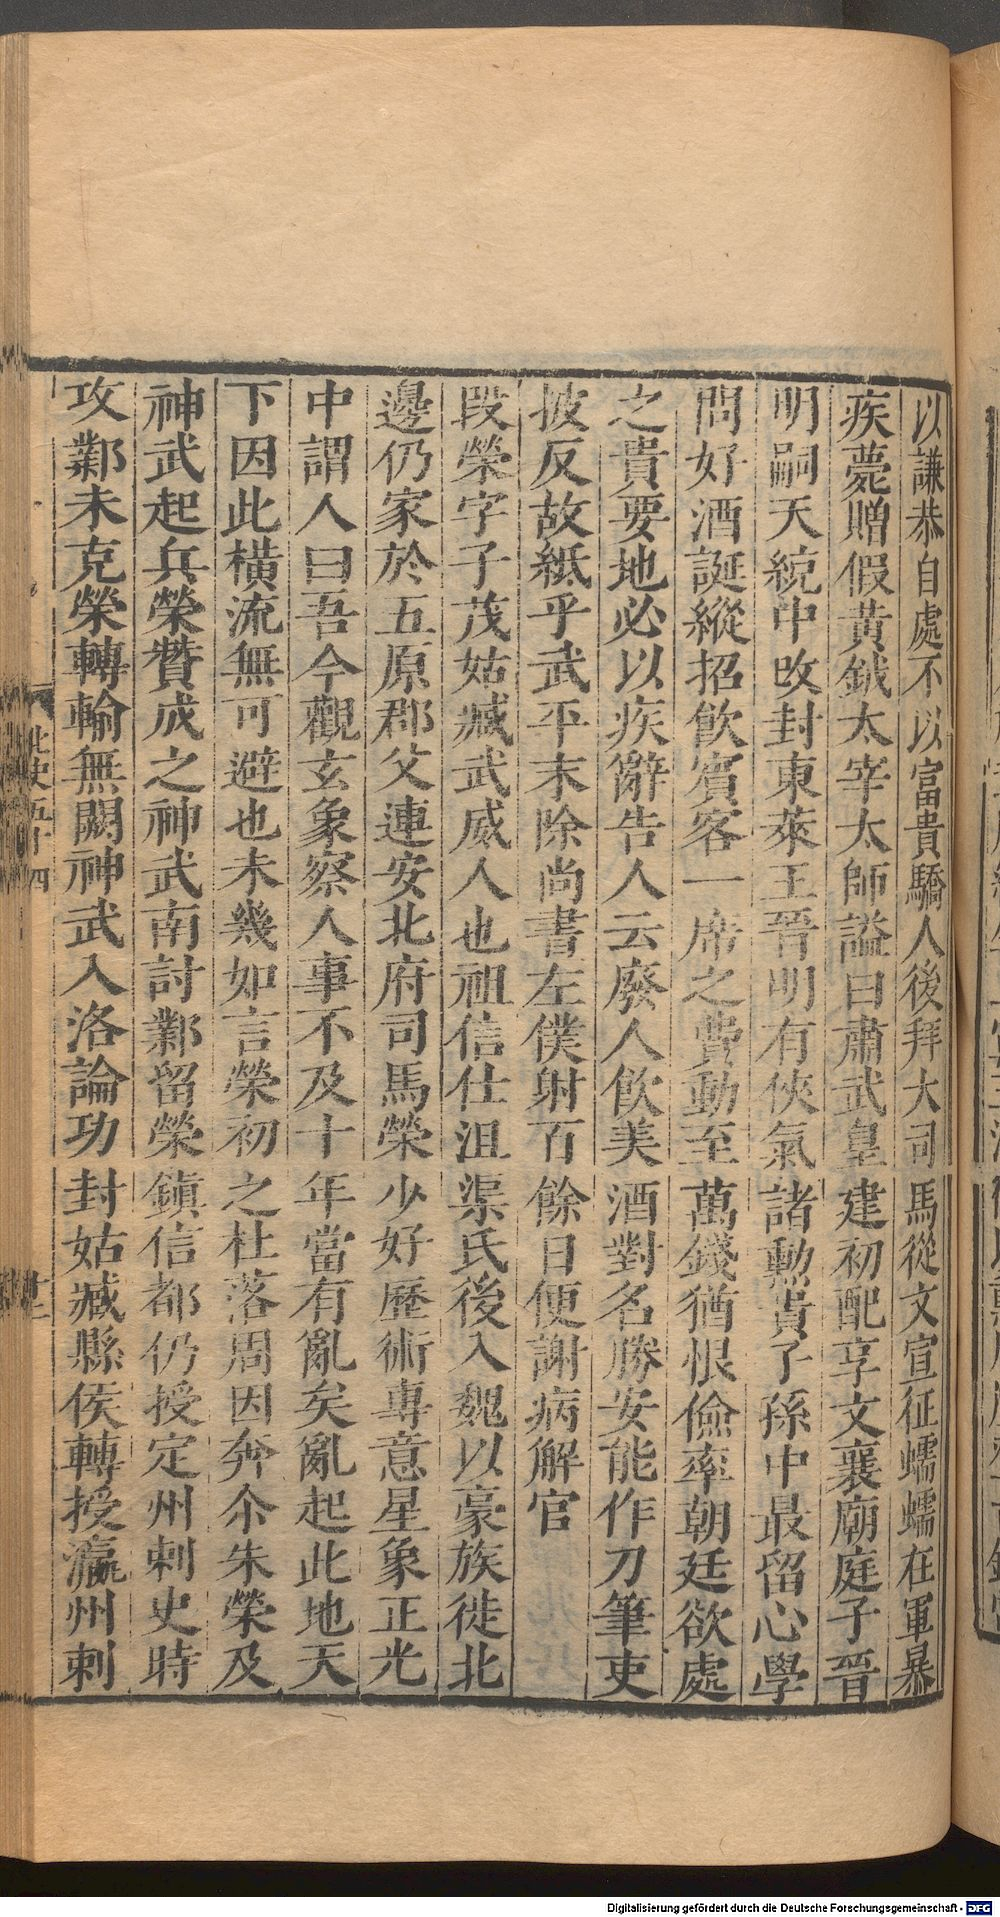 以謙恭自處不以富貴驕人後拜大司馬從文宣征蠕蠕在軍暴
疾薨贈假黃鉞太宰太師謚曰肅武皇建初配享文襄廟庭子晉
明嗣天統中改封東萊王晉明有俠氣諸勳貴子孫中最留心學
問好酒誕縱招飲賓客一席之費動至萬錢猶恨儉率朝廷欲處
之貴要地必以疾辭告人云廢人飲美酒對名勝安能作刀筆吏
披反故紙乎武平末除尚書左僕射百餘日便謝病解官
段榮字子茂姑臧武威人也祖信仕沮渠氏後入魏以豪族徙北
邊仍家於五原郡父連安北府司馬榮少好歷術專意星象正光
中謂人曰吾今觀玄象察人事不及十年當有亂矣亂起此地天
下因此橫流無可避也未幾如言榮初之杜落周因奔尒朱榮及
神武起兵榮贊成之神武南討鄴留榮鎮信都仍授定州刺史時
攻鄴未克榮轉輸無闕神武入洛論功封姑臧縣侯轉授瀛州刺
北史五十四
Digitalisierung gefördert durch die Deutsche Forschungsgemeinschaft - DFG